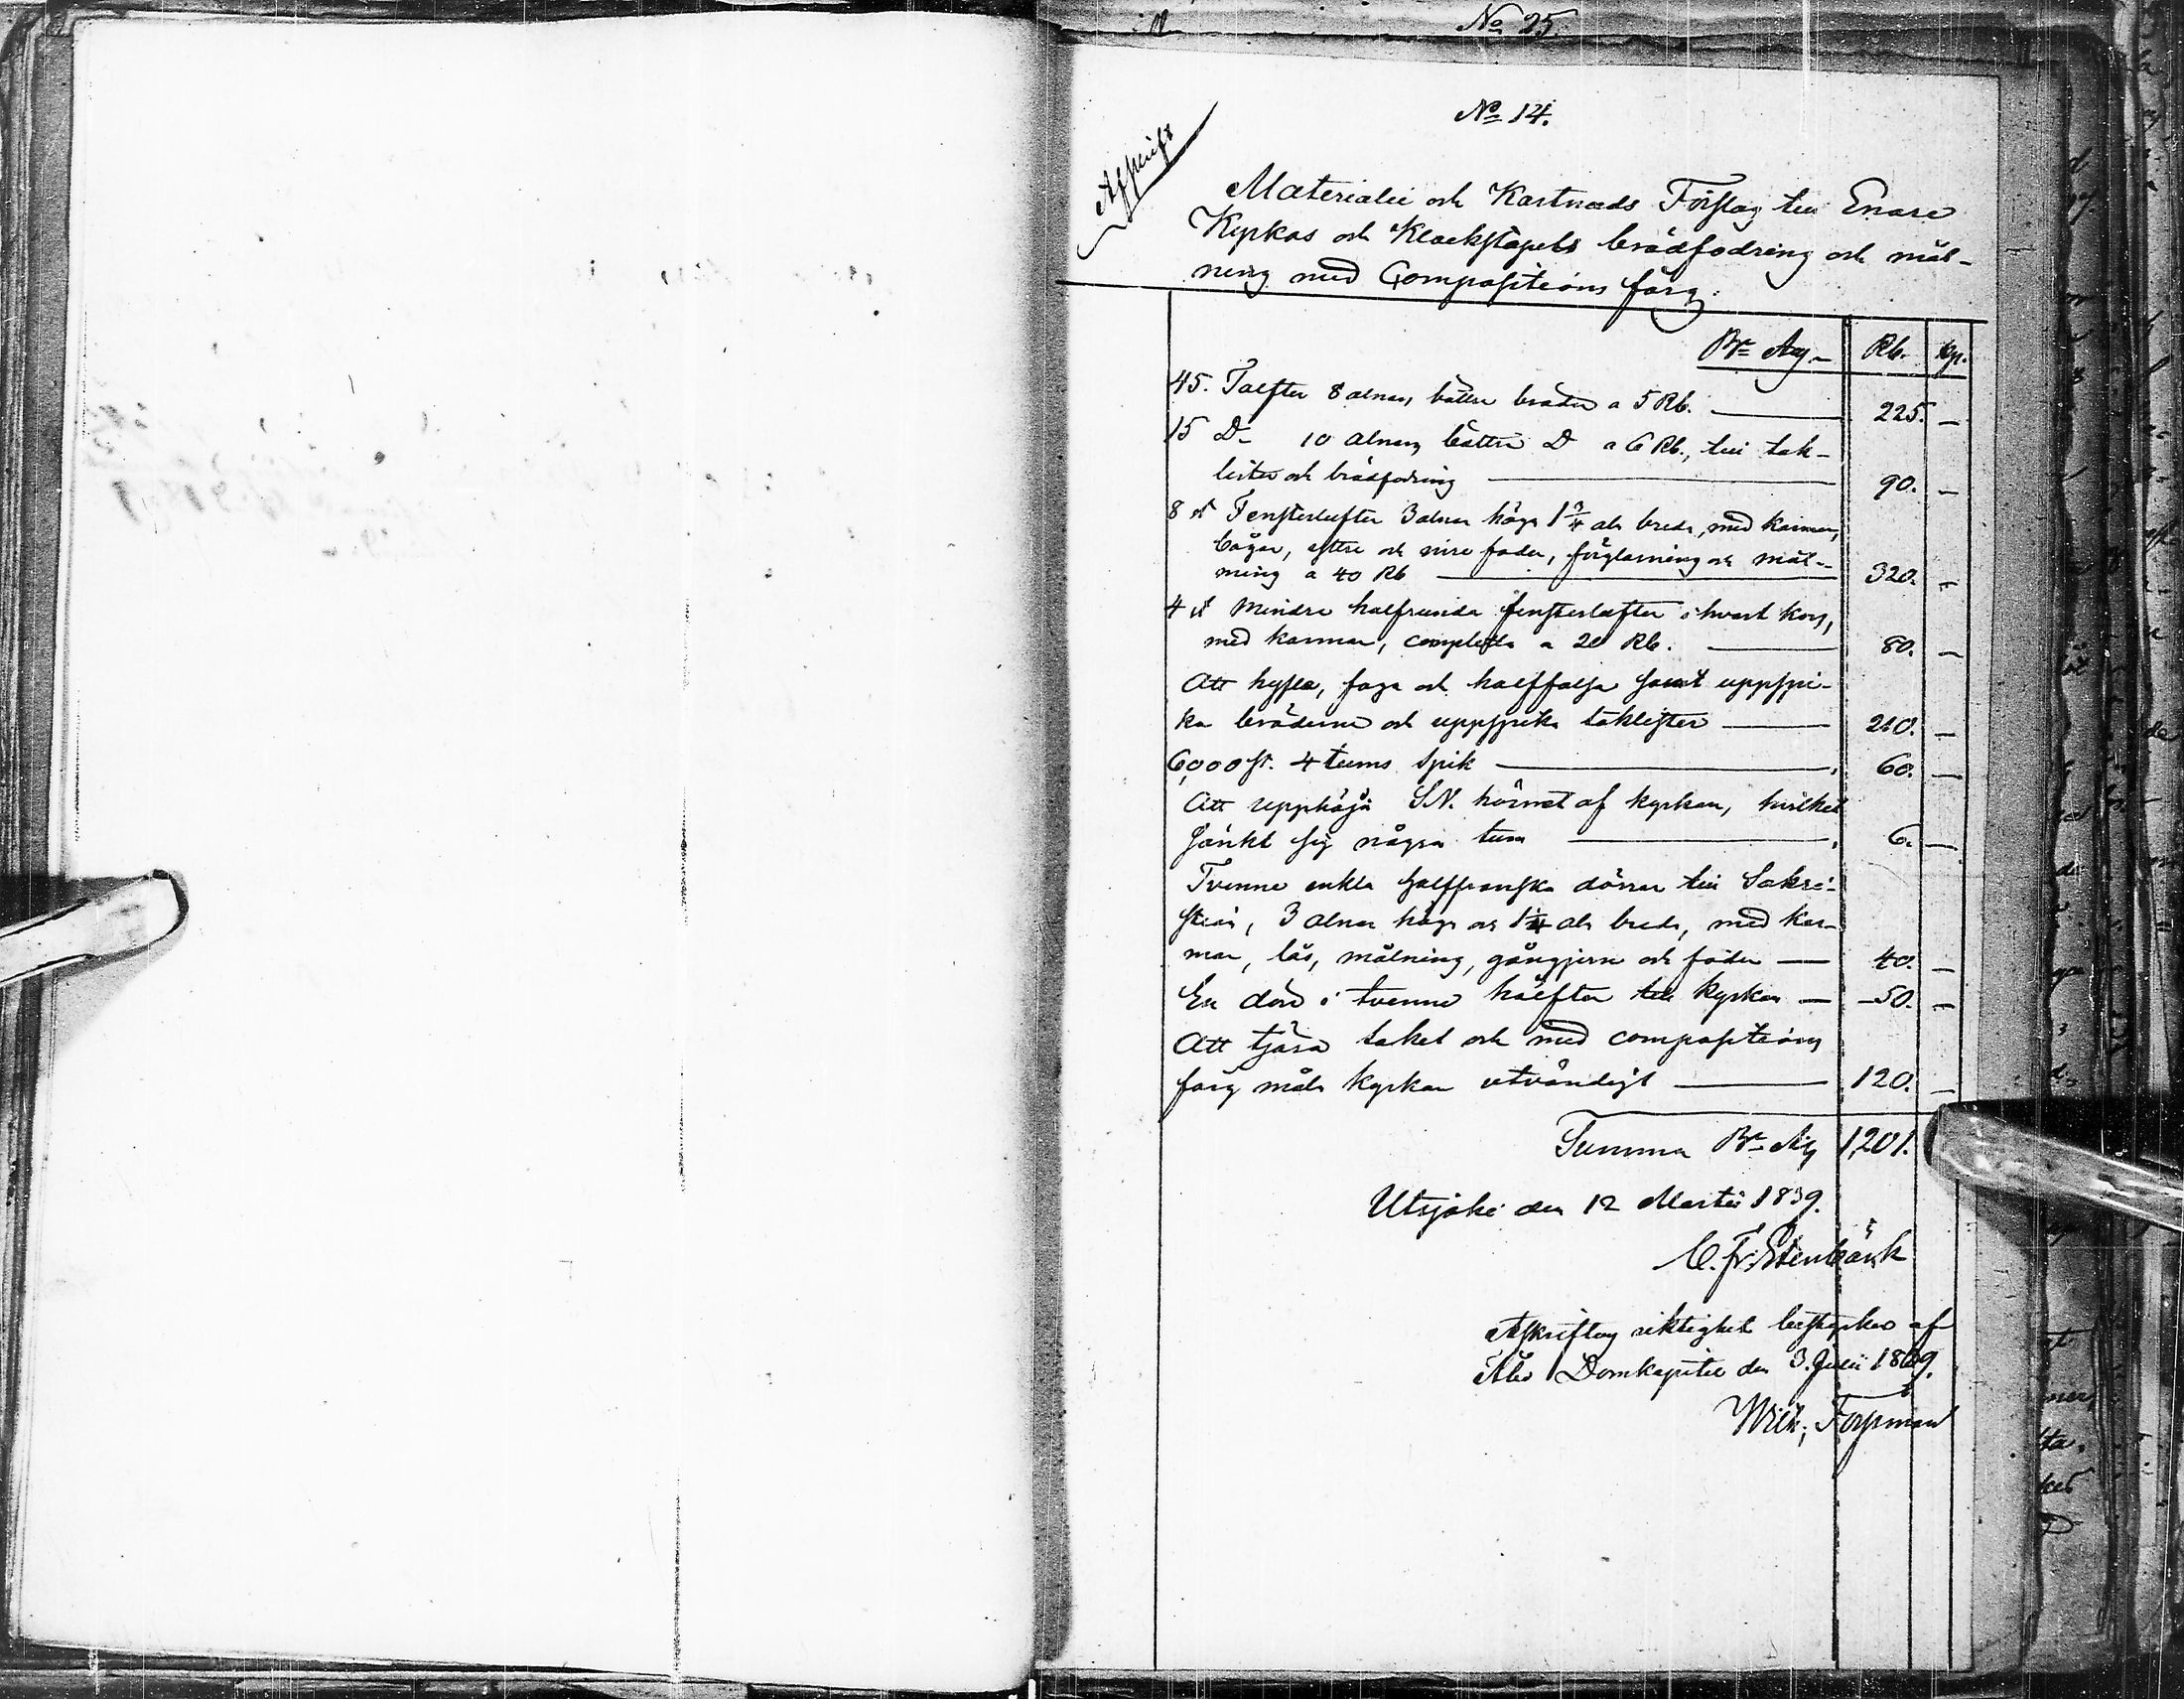 No 25.
No 14.
Afskrift
Materialie och Kostnads Förslag till Enare
Kyrkas och Klockstapels brädfodring och mål-
ning med Compositions färg.
Bco Ass Rb. Kp.
45. Tolfter 8 alnars bättre bräder a 5 Rb. 225. —
15 D- 10 alnars bättre D a 6 Rb., till tak-
lister och brädfodring 90. —
8 st Fensterlufter 3 alnar höga 1 3/4 aln breda, med karmar,
bågar, yttre och inre foder, förglasning och mål-
ning a 40 Rb 320. —
4 st mindre halfrunda fensterlufter i hvart kors,
med karmar, completta a 20 Rb. 80. —
Att hyfla, foga och halffalsa samt uppspi-
ka bräderne och uppspika taklister 210. —
6,000 st. 4 tums Spik 60. —
Att upphöja S.V. hörnet af kyrkan, hvilket
sänkt sig några tum 6. —
Tvenne enkla halffranska dörrar till Sakri-
stian, 3 alnar höga och 1 1/4 aln breda, med kar-
mar, lås, målning, gångjern och foder — 40. —
En dörr i tvenne hälfter till kyrkan — 50. —
Att tjära taket och med compositions
färg måla kyrkan utvändigt 120. —
Summa Bco Ass 1,201.
Utsjoki den 12 Martii 1839.
C. Fr. Stenbäck
Afskriftens riktighet bestyrkes af
Åbo Domkapitel den 3. Julii 1839.
Wilh. Forsman